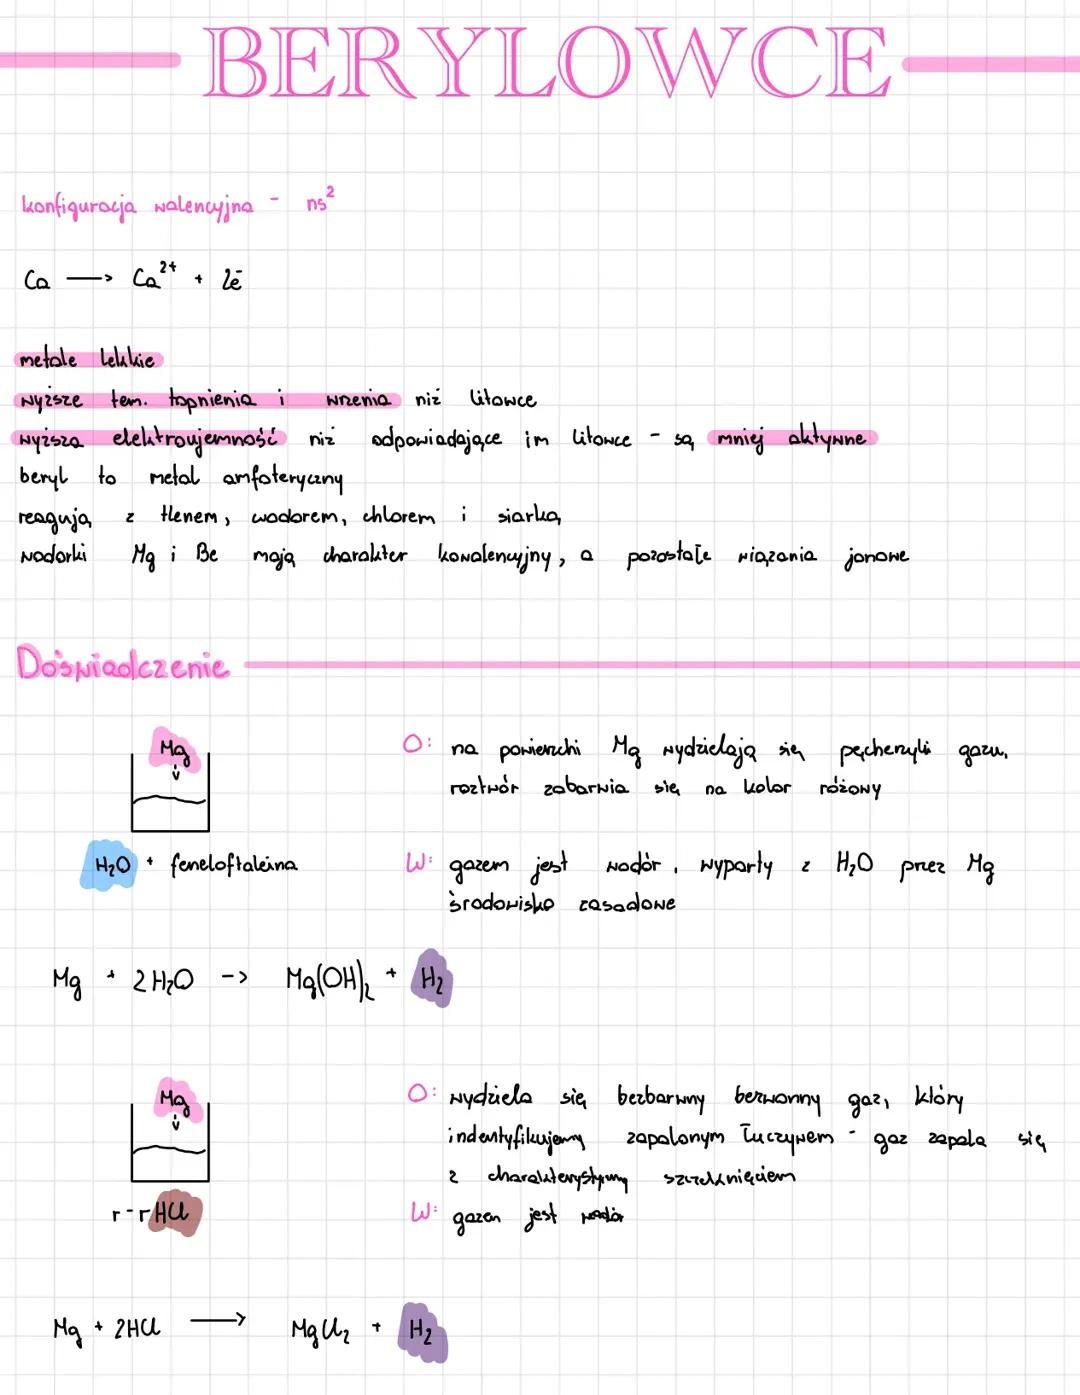 BERYLOWCE
konfiguracja walencyjna - ns²
Ca → Ca²⁺ + 2ē
metale lekkie
wyższe tem. topnienia i wrzenia niż litowce
wyższa elektroujemność niż odpowiadające im litowce - są mniej aktywne
beryl to metal amfoteryczny
reagują z tlenem, wodorem, chlorem i siarką
wodorki Mg i Be mają charakter kowalencyjny, a pozostałe wiązania jonowe
Doświadczenie
Mg
H₂O + feneloftaleina
O: na powierzchi Mg wydzielają się pęcherzyki gazu,
roztwór zabarwia się na kolor różowy
W: gazem jest wodór, wyparty z H₂O przez Mg
środowisko zasadowe
Mg + 2H₂O -> Mg(OH)₂ + H₂
Mg
r-r HCl
O: wydziela się bezbarwny bezwonny gaz, który
indentyfikujemy zapalonym łuczywem - gaz zapala się
z charakterystyczny szczeknięciem
W: gazem jest wodór
Mg + 2HCl → MgCl₂ + H₂